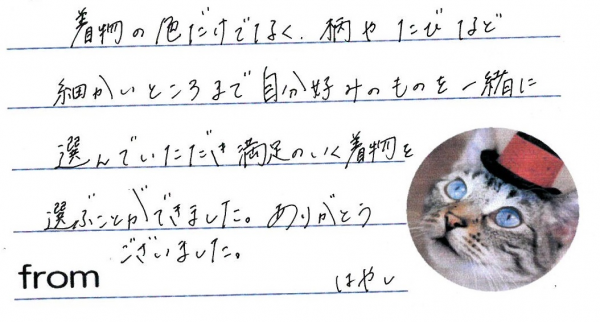 着物の色だけでなく、柄やたびなど
細かいところまで自分好みのものを一緒に
選んでいただき満足のいく着物を
選ぶことができました。ありがとう
ございました。
from はやし